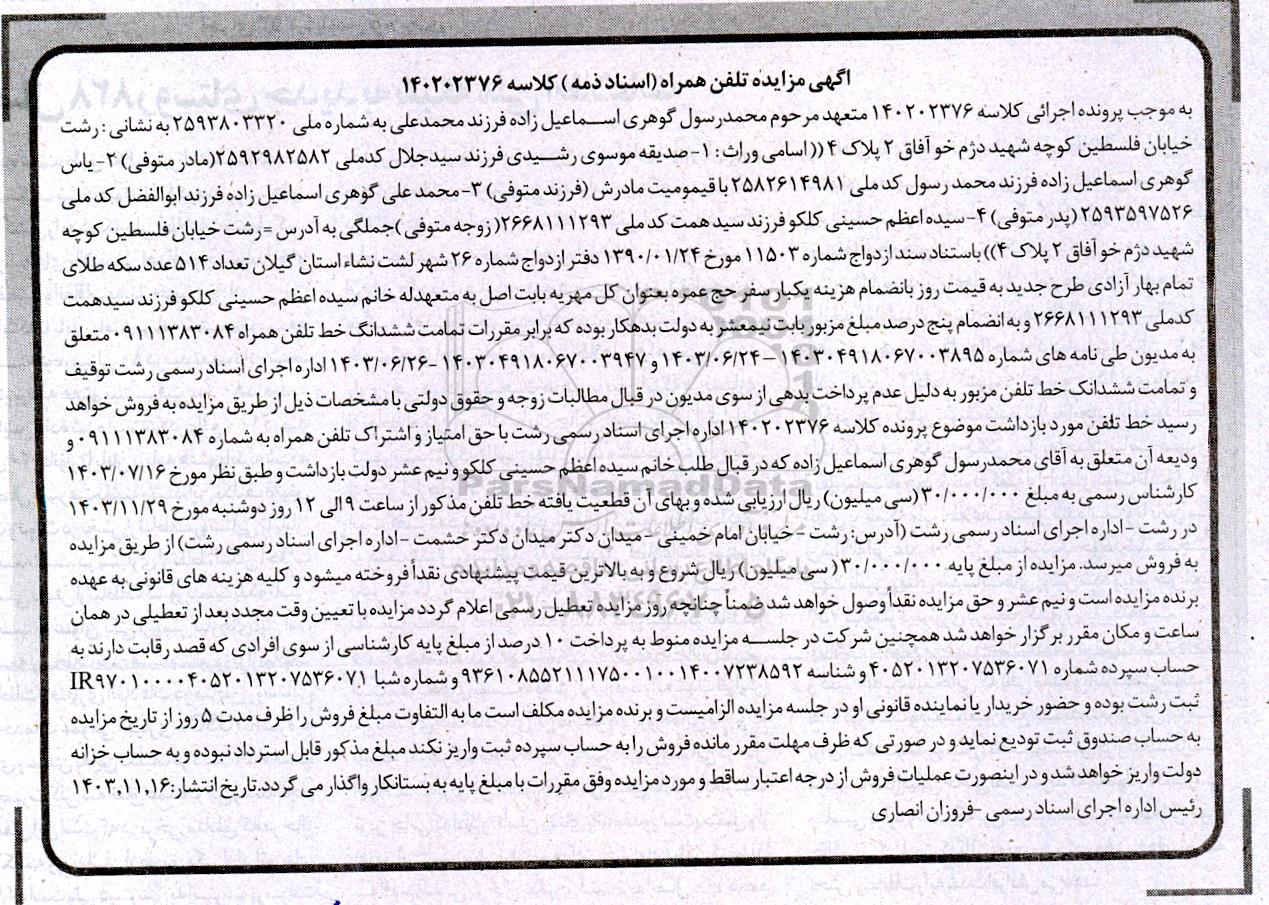 آگهی مزایده تلفن همراه (اسناد ذمه) کلاسه ۱۴۰۲۰۲۳۷۶
به موجب پرونده اجرائی کلاسه ۱۴۰۲۰۲۳۷۶ متعهد مرحوم محمدرسول گوهری اسماعیل زاده فرزند محمدعلی به شماره ملی ۲۵۹۳۸۰۳۳۲۰ به نشانی : رشت
خیابان فلسطین کوچه شهید دژم خو آفاق ۲ پلاک ۴ (( اسامی وراث : ۱- صدیقه موسوی رشیدی فرزند سیدجلال کدملی ۲۵۹۲۹۸۲۵۸۲(مادر متوفی) ۲- یاس
گوهری اسماعیل زاده فرزند محمد رسول کد ملی ۲۵۸۲۶۱۴۹۸۱ با قیمومیت مادرش (فرزند متوفی) ۳- محمد علی گوهری اسماعیل زاده فرزند ابوالفضل کد ملی
۲۵۹۳۵۹۷۵۲۶ (پدر متوفی) ۴- سیده اعظم حسینی کلکو فرزند سید همت کد ملی ۲۶۶۸۱۱۱۲۹۳( زوجه متوفی )جملگی به آدرس = رشت خیابان فلسطین کوچه
شهید دژم خو آفاق ۲ پلاک ۴)) باستناد سند ازدواج شماره ۱۱۵۰۳ مورخ ۱۳۹۰/۰۱/۲۴ دفتر ازدواج شماره ۲۶ شهر لشت نشاء استان گیلان تعداد ۵۱۴ عدد سکه طلای
تمام بهار آزادی طرح جدید به قیمت روز بانضمام هزینه یکبار سفر حج عمره بعنوان کل مهریه بابت اصل به متعهدله خانم سیده اعظم حسینی کلکو فرزند سید همت
کدملی ۲۶۶۸۱۱۱۲۹۳ و به انضمام پنج درصد مبلغ مزبور بابت نیمعشر به دولت بدهکار بوده که برابر مقررات تمامت ششدانگ خط تلفن همراه ۰۹۱۱۱۳۸۳۰۸۴ متعلق
به مدیون طی نامه های شماره ۱۴۰۳۰۴۹۱۸۰۶۷۰۰۳۸۹۵ – ۱۴۰۳/۰۶/۲۴ و ۱۴۰۳۰۴۹۱۸۰۶۷۰۰۳۹۴۷ -۱۴۰۳/۰۶/۲۶ اداره اجرای اسناد رسمی رشت توقیف
و تمامت ششدانک خط تلفن مزبور به دلیل عدم پرداخت بدهی از سوی مدیون در قبال مطالبات زوجه و حقوق دولتی با مشخصات ذیل از طریق مزایده به فروش خواهد
رسید خط تلفن مورد بازداشت موضوع پرونده کلاسه ۱۴۰۲۰۲۳۷۶ اداره اجرای اسناد رسمی رشت با حق امتیاز و اشتراک تلفن همراه به شماره ۰۹۱۱۱۳۸۳۰۸۴ و
ودیعه آن متعلق به آقای محمدرسول گوهری اسماعیل زاده که در قبال طلب خانم سیده اعظم حسینی کلکو و نیم عشر دولت بازداشت و طبق نظر مورخ ۱۴۰۳/۰۷/۱۶
کارشناس رسمی به مبلغ ۳۰/۰۰۰/۰۰۰ (سی میلیون) ریال ارزیابی شده و بهای آن قطعیت یافته خط تلفن مذکور از ساعت ۹ الی ۱۲ روز دوشنبه مورخ ۱۴۰۳/۱۱/۲۹
در رشت - اداره اجرای اسناد رسمی رشت (آدرس: رشت - خیابان امام خمینی - میدان دکتر میدان دکتر حشمت - اداره اجرای اسناد رسمی رشت) از طریق مزایده
به فروش میرسد. مزایده از مبلغ پایه ۳۰/۰۰۰/۰۰۰ ( سی میلیون) ریال شروع و به بالاترین قیمت پیشنهادی نقدأ فروخته میشود و کلیه هزینه های قانونی به عهده
برنده مزایده است و نیم عشر و حق مزایده نقدأ وصول خواهد شد ضمناً چنانچه روز مزایده تعطیل رسمی اعلام گردد مزایده با تعیین وقت مجدد بعد از تعطیلی در همان
ساعت و مکان مقرر برگزار خواهد شد همچنین شرکت در جلسه مزایده منوط به پرداخت ۱۰ درصد از مبلغ پایه کارشناسی از سوی افرادی که قصد رقابت دارند به
حساب سپرده شماره ۴۰۵۲۰۱۳۲۰۷۵۳۶۰۷۱ و شناسه ۹۳۶۱۰۸۵۵۲۱۱۱۱۷۵۰۰۱۰۰۱۴۰۰۷۲۳۸۵۹۲ و شماره شبا IR۹۷۰۱۰۰۰۰۴۰۵۲۰۱۳۲۰۷۵۳۶۰۷۱
ثبت رشت بوده و حضور خریدار یا نماینده قانونی او در جلسه مزایده الزامیست و برنده مزایده مکلف است ما به التفاوت مبلغ فروش را ظرف مدت ۵ روز از تاریخ مزایده
به حساب صندوق ثبت تودیع نماید و در صورتی که ظرف مهلت مقرر مانده فروش را به حساب سپرده ثبت واریز نکند مبلغ مذکور قابل استرداد نبوده و به حساب خزانه
دولت واریز خواهد شد و در اینصورت عملیات فروش از درجه اعتبار ساقط و مورد مزایده وفق مقررات با مبلغ پایه به بستانکار واگذار می گردد.تاریخ انتشار:۱۴۰۳,۱۱,۱۶
رئیس اداره اجرای اسناد رسمی -فروزان انصاری
ParsNamadData